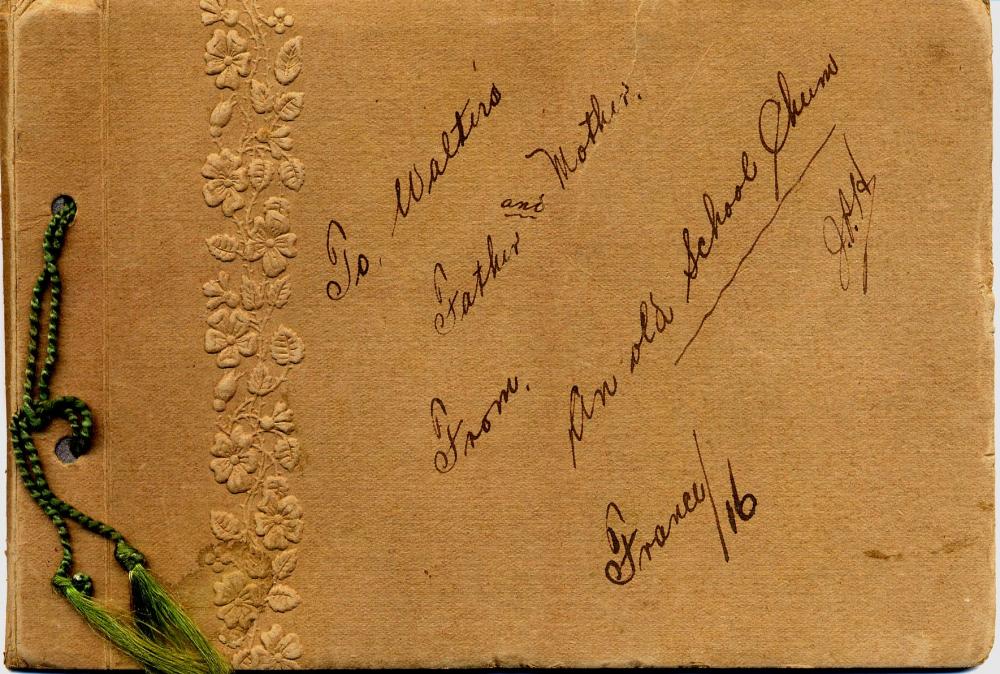 To. Walter's
Father and Mother.
From.
An old School Chum
J.A.H
France/16